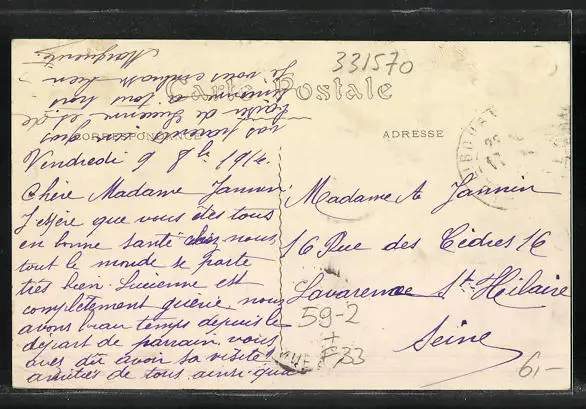 331570
Carte Postale
CORRESPONDANCE
ADRESSE
Vendredi 9 8bre 1914.
Chère Madame Jannin
J'espère que vous êtes tous
en bonne santé chez nous
tout le monde se porte
très bien. Lucienne est
completement guérie nous
avons beau temps depuis le
départ de parrain. vous
avez dû avoir sa visite!
amitiés de tous ainsi qua
vos parents ainsi que
baiser de Lucienne et de
a tous trois
Je vous embrasse bien
Marguerite
Madame A Jannin
16 Rue des Cèdres 16
Lavarenne St Hilaire
Seine
59-2
6,-